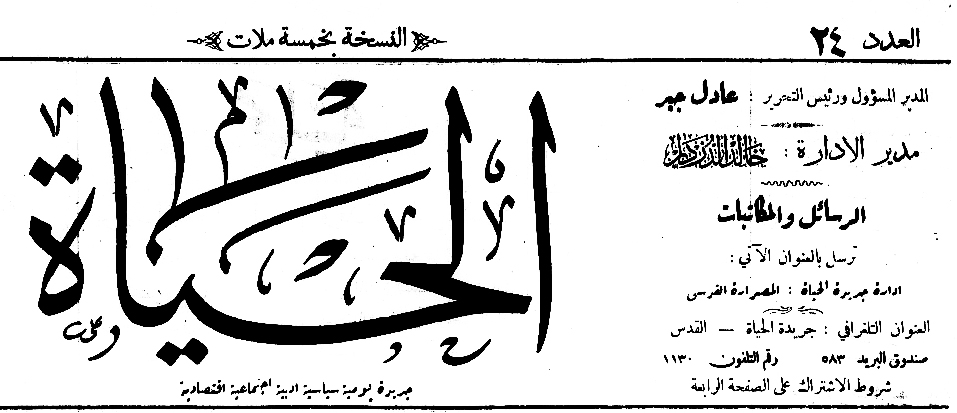 العدد ٢٤
النسخة بخمسة ملات
الحياة
جريدة يومية سياسية ادبية اجتماعية اقتصادية
المدير المسؤول ورئيس التحرير : عادل جبر
مدير الادارة : خير الدين الزركلي
الرسائل والمكاتبات
ترسل بالعنوان الآتي :
ادارة جريدة الحياة : المصرارة القدس
العنوان التلغرافي : جريدة الحياة — القدس
صندوق البريد ٥٨٣ رقم التلفون ١١٣٠
شروط الاشتراك على الصفحة الرابعة